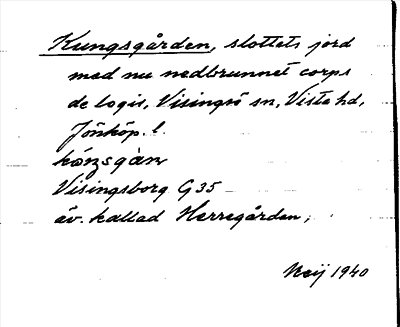 Kungsgården, slottets jord
med nu nedbrunnet corps
de logis, Visingsö sn, Vista hd,
Jönköp. l.
kóŋsgàɳ
Visingsborg G35
äv. kallad Herregården;
1940